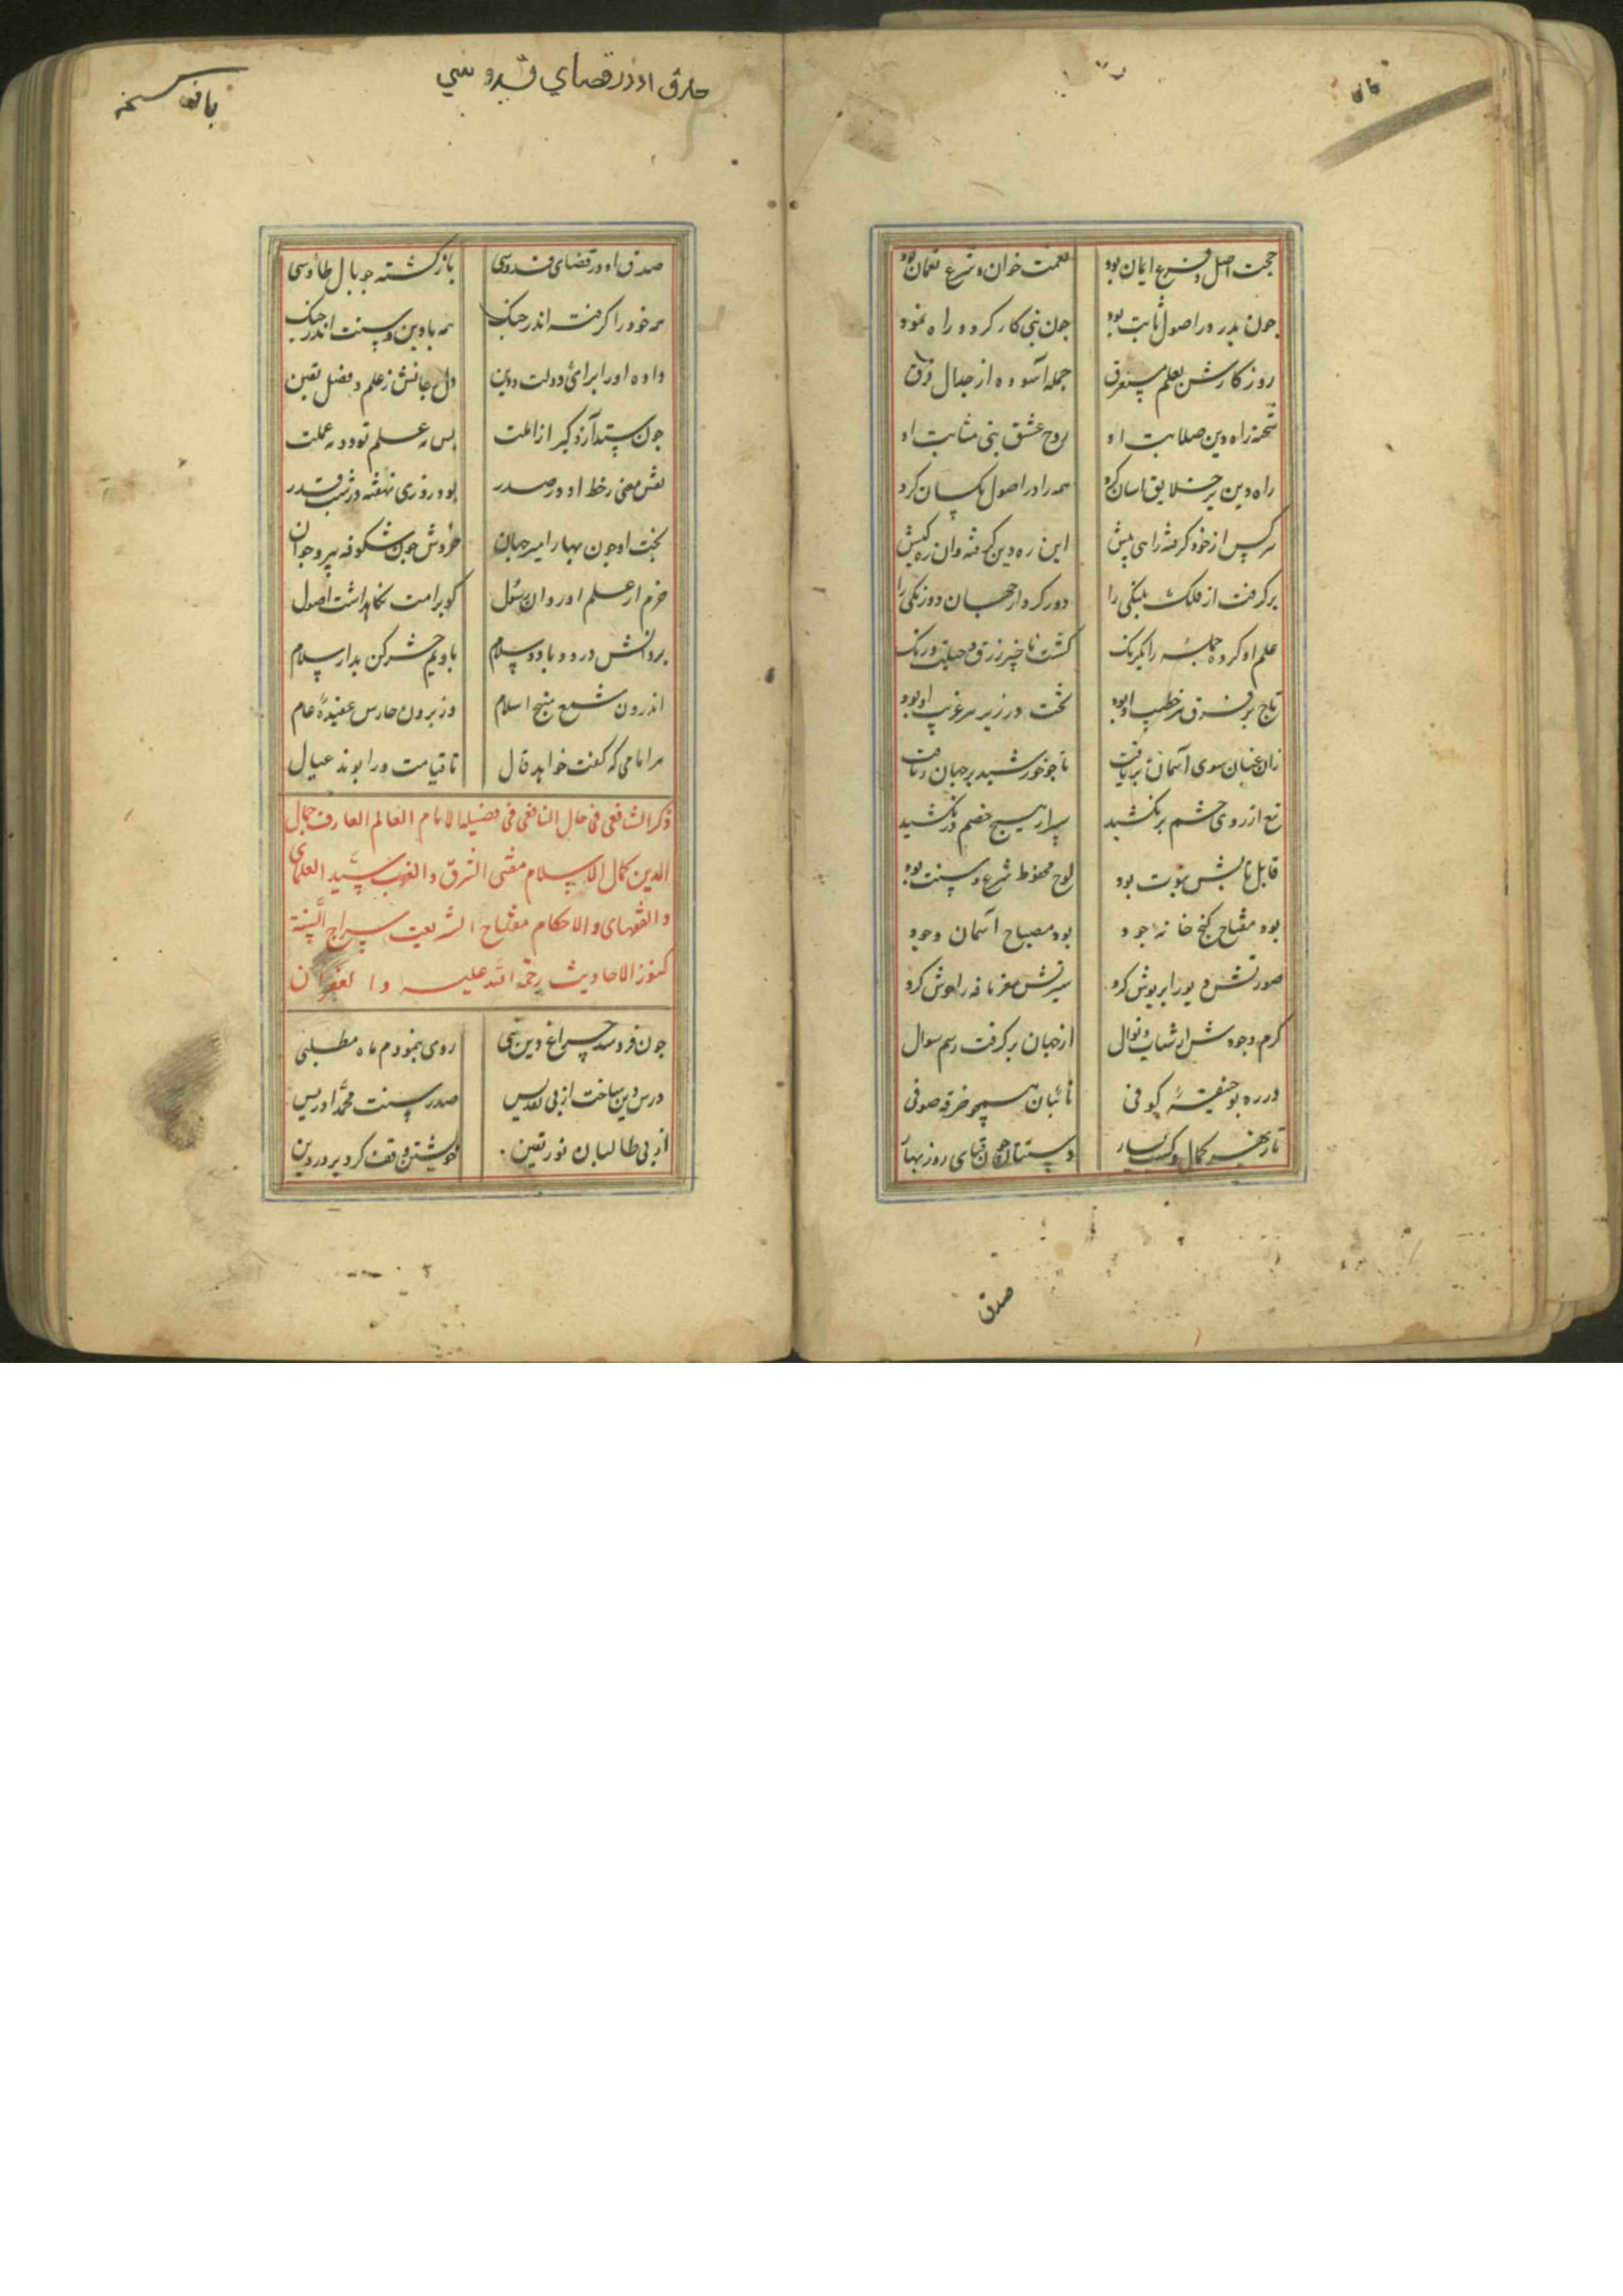 حجت اصل و فرع ایمان بود نعمت خوان و شرع نعمان بود
چون بدر در اصول ثابت بود چون نبی کار کرد و راه نمود
روز کارش بعلم مستغرق جمله آسوده از جبال فرق
شحنه راه دین صلابت او روح عشق نبی مثابت او
راه دین بر خلایق اسان کرد همه را در اصول یکسان کرد
هر کس از خود گرفته راهی پیش این ره دین گرفته وان ره کیش
برگرفت از فلک پلنگی را دور کرد از جهان دورنگی را
علم او کرده جمله را یکرنک گشت ناچیز زرق و حیلت و رنک
تاج بر فرق هر خطیب او بود تخت در زیر هر غریب او بود
زان عنان سوی آسمان برتافت تا چو خورشید بر جهان تافت
تیغ از روی خشم برنکشید سر از هیچ خصم درنکشید
قابل تابش نبوت بود لوح محفوظ شرع و سنت بود
بود مفتاح کنج خانه جود بود مصباح آسمان وجود
صورتش دیو را پریوش کرد سیرتش مغز نافه را خوش کرد
کرم و جودش از شتاب و نوال از جهان برگرفت رسم سوال
در ره بوحنیفهٔ کوفی نائبان همچو خرقه صوفی
دوستان چون قبای روز بهار
صدق
صدق او در قضای قدوسی
صدق او در قضای قدوسی بازگشته چو بال طاوسی
هر خود را گرفته اندر جنک همه با دین و سنت اندر جنک
داده او را برای دولت و دین دل و جانش ز علم و فضل یقین
چون ستد آز دگیر از اعلت بس نه علم تو دو نه عملت
نقش معنی ز خط او در صدر بود روزی نهفته در شب قدر
بخت او چون بهار امیر جهان خروش چون شکوفه پیر و جوان
خرم از علم او روان رسول کو بر امت نگاهداشت اصول
بر روانش درود باد و سلام باد یم حشر کن بدار سلام
اندرون شمع منهج اسلام وز برون حارس عقیدهٔ عام
هر امامی که گفت خواهد قال تا قیامت ورا بوند عیال
ذکر الشافعی فی حال النافعی فی فضیله الامام العالم العارف جمال
الدین کمال الاسلام مفتی الشرق والغرب سید العلمای
والفقهای والاحکام مفتاح الشریعت سراج السنة
کنوز الاحادیث رحمة الله علیه والغفران
چون فرو شد چراغ دین نبی روی بنمود م ماه مطلبی
درس دین ساخت از پی تقدیس صدر سنت محمد ادریس
از پی طالبان نور یقین خویشتن وقف کرد بر در دین